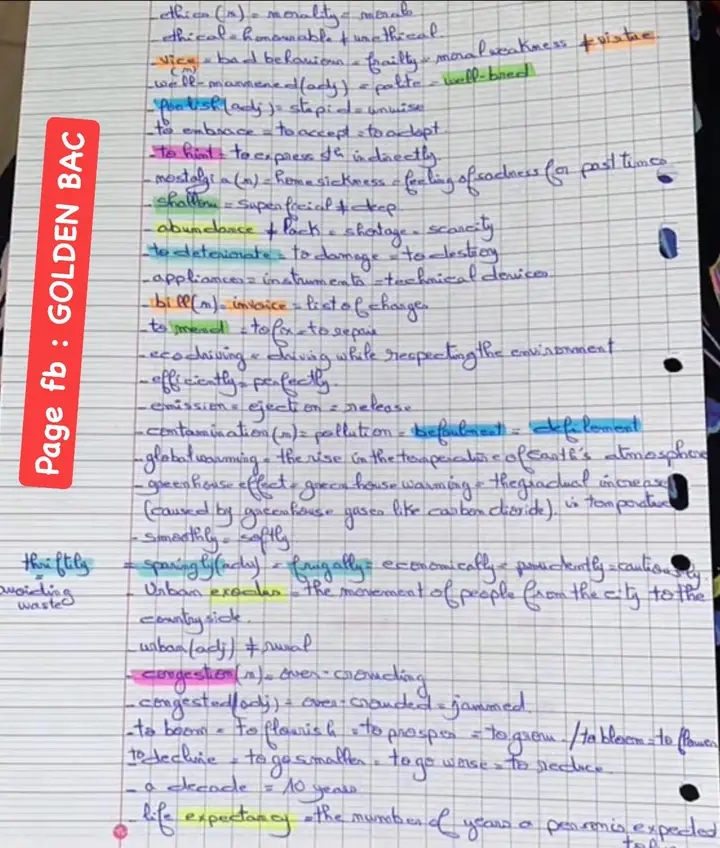 Page fb : GOLDEN BAC
- ethics (n) = morality = morals
- ethical = honourable ≠ unethical.
- vice (n) = bad behaviour = frailty = moral weakness ≠ virtue
- well-mannered (adj) = polite = well-bred
- foolish (adj) = stupid = unwise
- to embrace = to accept = to adopt.
- to hint = to express sth indirectly.
- nostalgia (n) = homesickness = feeling of sadness for past times
- shallow = superficial ≠ deep.
- abundance ≠ lack = shortage = scarcity
- to deteriorate = to damage = to destroy
- appliances = instruments = technical devices
- bill (n) = invoice = list of charges
- to mend = to fix = to repair
- eco driving = driving while respecting the environment
- efficiently = perfectly.
- emission = ejection = release
- contamination (n) = pollution = befoulment = defilement
- global warming = the rise in the temperature of earth's atmosphere
- greenhouse effect = green house warming = the gradual increase
(caused by greenhouse gases like carbon dioxide). in temperature
- smoothly = softly.
thriftily = sparingly (adv) = frugally = economically = prudently = cautiously.
= avoiding waste
- Urban exodus = the movement of people from the city to the
countryside.
- urban (adj) ≠ rural
- congestion (n) = over-crowding
- congested (adj) = over-crowded = jammed.
- to boom = to flourish = to prosper = to grow. / to bloom = to flower
to decline = to go smaller = to go worse = to reduce.
- a decade = 10 years
- life expectancy = the number of years a person is expected